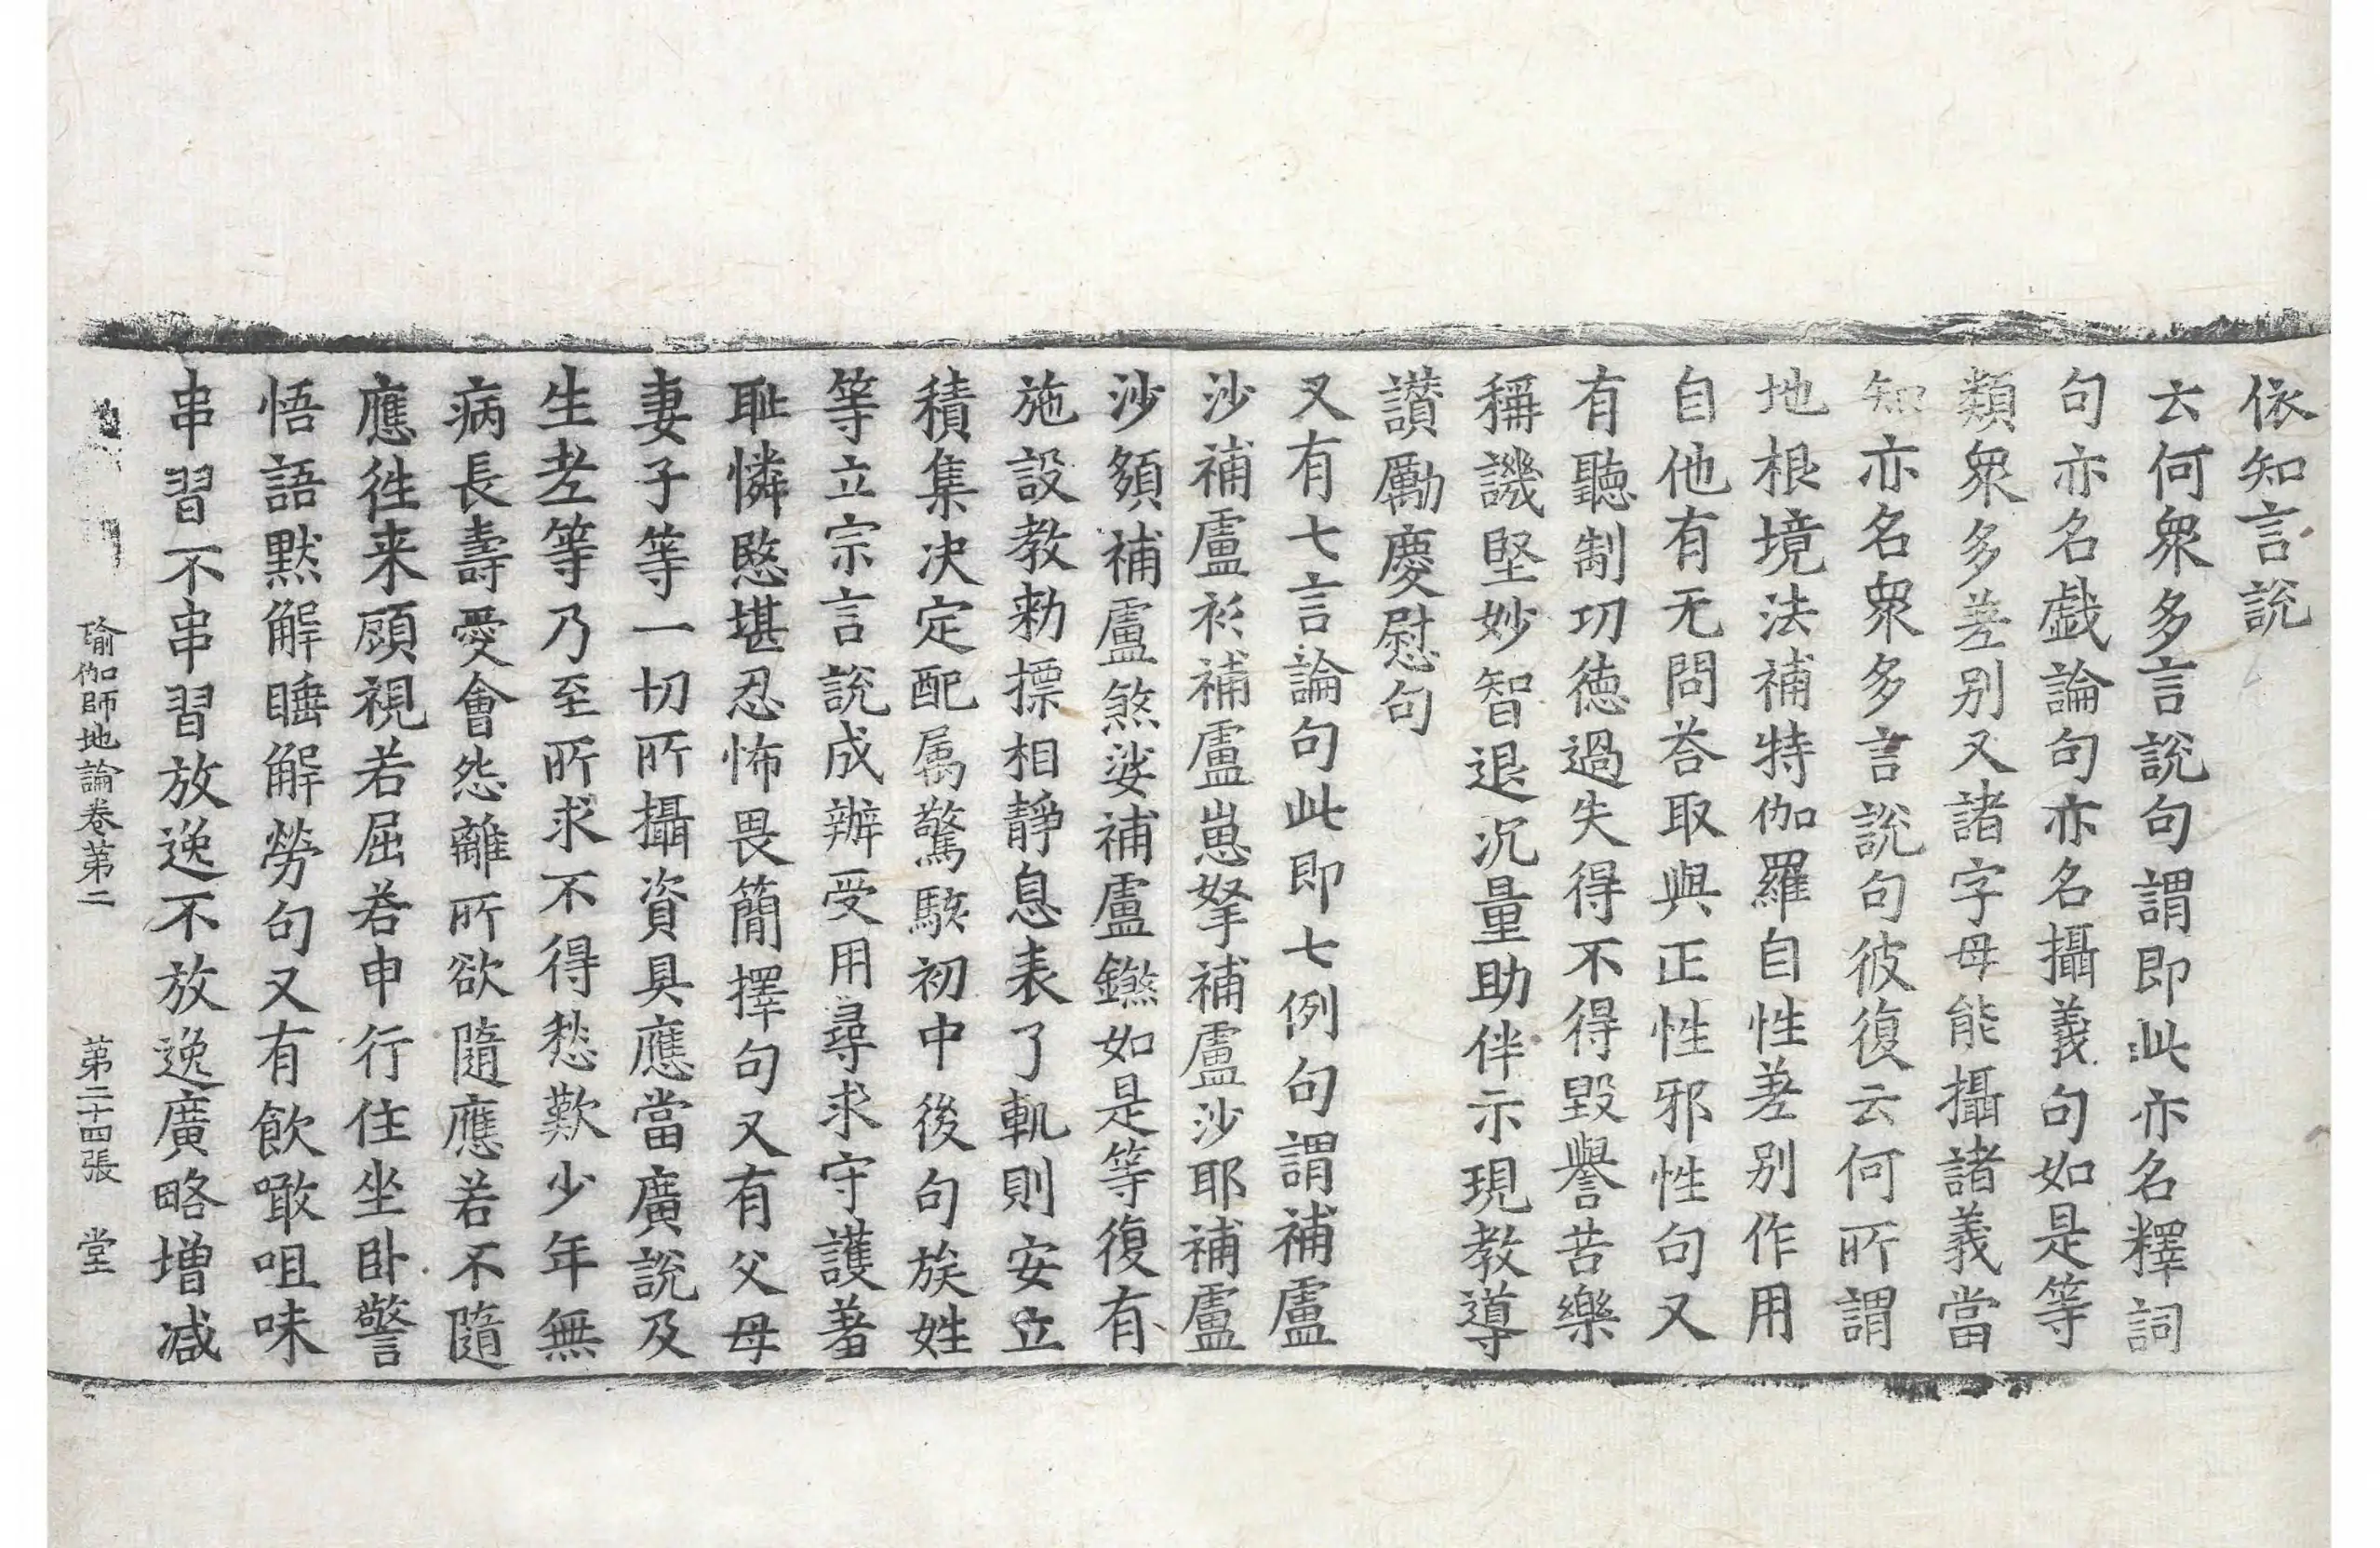 依知言說
云何衆多言說句謂即此亦名釋詞
句亦名戱論句亦名攝義句如是等
類衆多差别又諸字母能攝諸義當
知亦名衆多言說句彼復云何所謂
地根境法補特伽羅自性差别作用
自他有无問荅取與正性邪性句又
有聽制功德過失得不得毀譽苦樂
稱譏堅妙智退沉量助伴示現教導
讃勵慶慰句
又有七言論句此即七例句謂補盧
沙補盧衫補盧崽拏補盧沙耶補盧
沙頞補盧煞娑補盧鑐如是等復有
施設教勑摽相静息表了軌則安立
積集决定配属驚駭初中後句族姓
等立宗言說成辦受用尋求守護羞
耻憐愍堪忍怖畏簡擇句又有父母
妻子等一切所攝資具應當廣說及
生老等乃至所求不得愁歎少年無
病長壽愛會怨離所欲隨應若不隨
應徃来顧視若屈若申行住坐卧警
悟語默解睡解勞句又有飲噉咀味
串習不串習放逸不放逸廣略增减
瑜伽師地論卷第二 第二十四張 堂